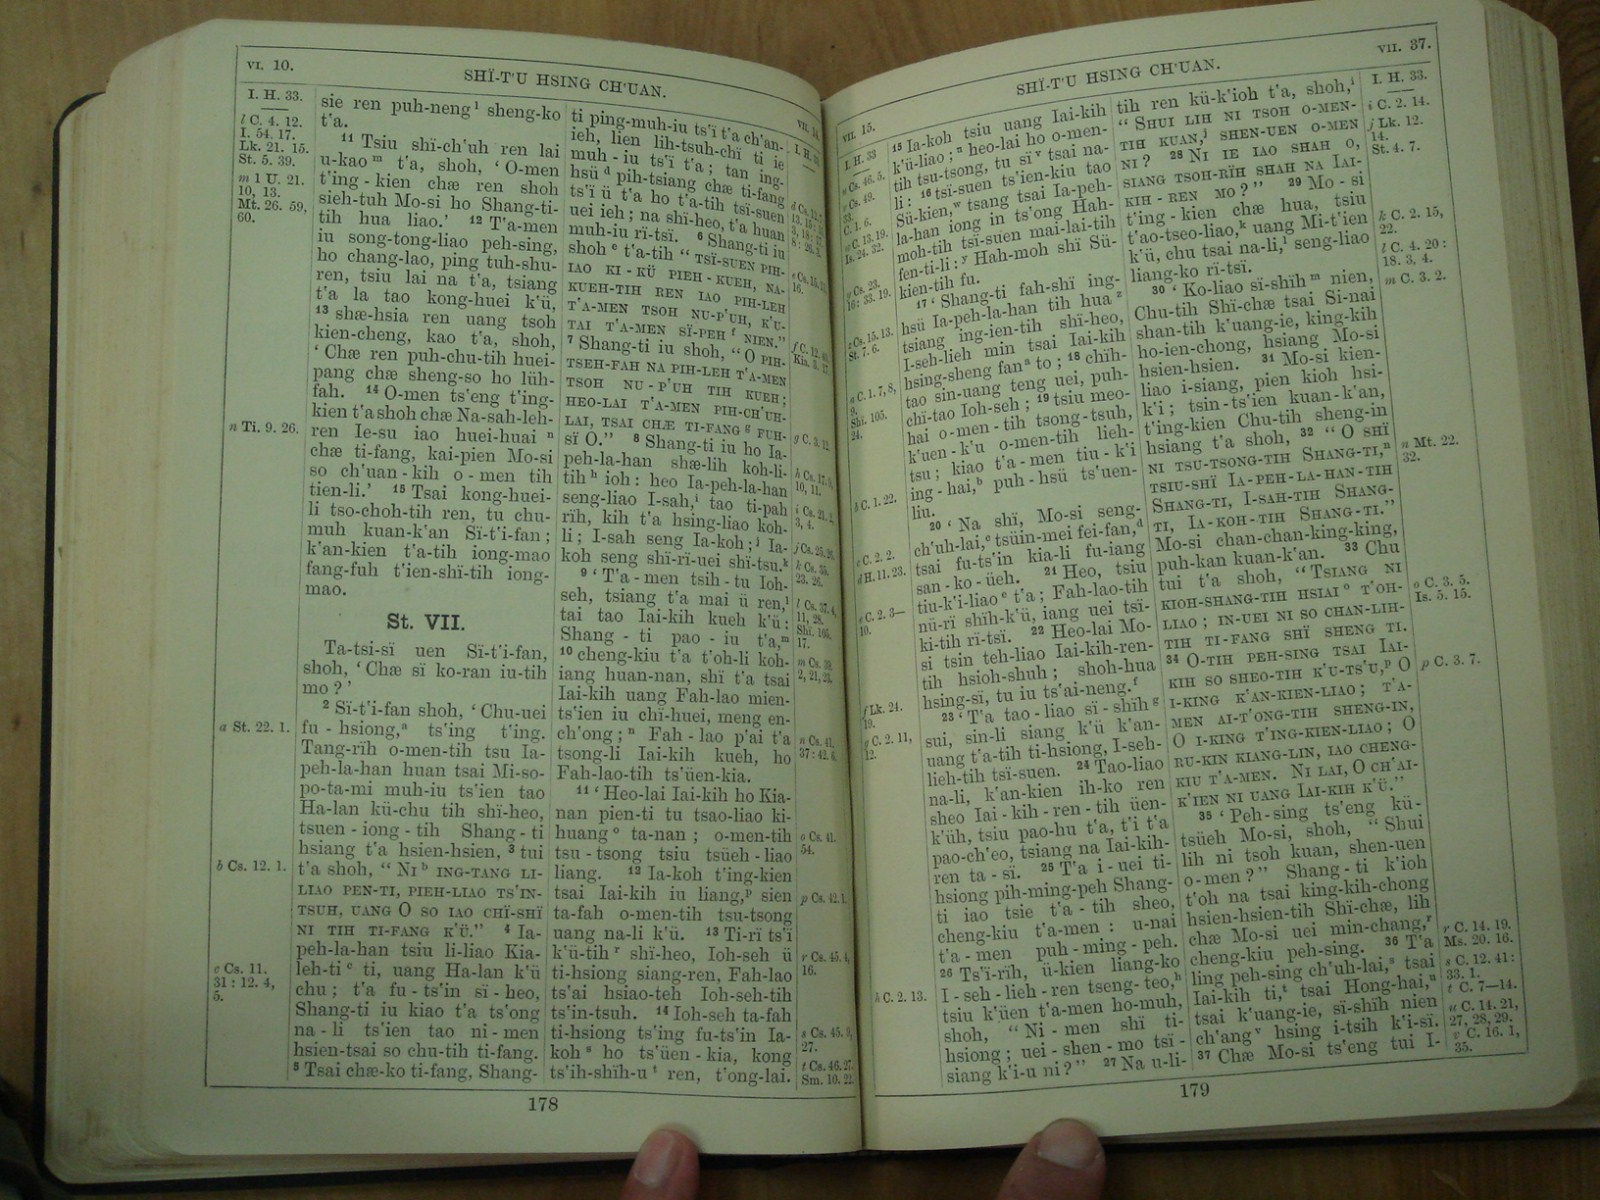 VI. 10.
SHÏ-T'U HSING CH'UAN.
VII. 14.
I. H. 33.
l C. 4. 12.
I. 54. 17.
Lk. 21. 15.
St. 5. 39.
m 1 U. 21.
10, 13.
Mt. 26. 59,
60.
n Ti. 9. 26.
a St. 22. 1.
b Cs. 12. 1.
c Cs. 11.
31 : 12. 4,
5.
sie ren puh-neng l sheng-ko
t'a.
11 Tsiu shï-ch'uh ren lai
u-kao m t'a, shoh, ‘ O-men
t'ing - kien chæ ren shoh
sieh-tuh Mo-si ho Shang-ti-
tih hua liao.’ 12 T'a-men
iu song-tong-liao peh-sing,
ho chang-lao, ping tuh-shu-
ren, tsiu lai na t'a, tsiang
t'a la tao kong-huei k'ü,
13 shæ-hsia ren uang tsoh
kien-cheng, kao t'a, shoh,
‘ Chæ ren puh-chu-tih huei-
pang chæ sheng-so ho lüh-
fah. 14 O-men ts'eng t'ing-
kien t'a shoh chæ Na-sah-leh-
ren Ie-su iao huei-huai n
chæ ti-fang, kai-pien Mo-si
so ch'uan - kih o - men tih
tien-li.’ 15 Tsai kong-huei-
li tso-choh-tih ren, tu chu-
muh kuan-k'an Sï-t'i-fan ;
k'an-kien t'a-tih iong-mao
fang-fuh t'ien-shï-tih iong-
mao.
St. VII.
Ta-tsi-sï uen Sï-t'i-fan,
shoh, ‘ Chæ sï ko-ran iu-tih
mo ? ’
2 Sï-t'i-fan shoh, ‘ Chu-uei
fu - hsiong, a ts'ing t'ing.
Tang-rïh o-men-tih tsu Ia-
peh-la-han huan tsai Mi-so-
po-ta-mi muh-iu ts'ien tao
Ha-lan kü-chu tih shï-heo,
tsuen - iong - tih Shang - ti
hsiang t'a hsien-hsien, 3 tui
t'a shoh, “ NI b ING-TANG LI-
LIAO PEN-TI, PIEH-LIAO TS'IN-
TSUH, UANG O SO IAO CHÏ-SHÏ
NI TIH TI-FANG K'Ü.” 4 Ia-
peh-la-han tsiu li-liao Kia-
leh-ti c ti, uang Ha-lan k'ü
chu ; t'a fu - ts'in sï - heo,
Shang-ti iu kiao t'a ts'ong
na - li ts'ien tao ni - men
hsien-tsai so chu-tih ti-fang.
5 Tsai chæ-ko ti-fang, Shang-
ti ping-muh-iu ts'ï t'a ch'an-
ieh, lien lih-tsuh-chï ti ie
muh - iu ts'ï t'a ; tan ing-
hsü d pih-tsiang chæ ti-fang
ts'ï ü t'a ho t'a-tih tsï-suen
uei ieh ; na shï-heo, t'a huan
muh-iu rï-tsï. 6 Shang-ti iu
shoh e t'a-tih “ TSÏ-SUEN PIH-
IAO KI - KÜ PIEH - KUEH, NA-
KUEH-TIH REN IAO PIH-LEH
T'A-MEN TSOH NU-P'UH, K'U-
TAI T'A-MEN SÏ-PEH f NIEN.”
7 Shang-ti iu shoh, “ O PIH-
TSEH-FAH NA PIH-LEH T'A-MEN
TSOH NU - P'UH TIH KUEH ;
HEO-LAI T'A-MEN PIH-CH'UH-
LAI, TSAI CHÆ TI-FANG g FUH-
SÏ O.” 8 Shang-ti iu ho Ia-
peh-la-han shæ-lih koh-li-
tih h ioh : heo Ia-peh-la-han
seng-liao I-sah, i tao ti-pah
rïh, kih t'a hsing-liao koh-
li ; I-sah seng Ia-koh ; j Ia-
koh seng shï-rï-uei shï-tsu. k
9 ‘ T'a - men tsih - tu Ioh-
seh, tsiang t'a mai ü ren, l
tai tao Iai-kih kueh k'ü :
Shang - ti pao - iu t'a, m
10 cheng-kiu t'a t'oh-li koh-
iang huan-nan, shï t'a tsai
Iai-kih uang Fah-lao mien-
ts'ien iu chï-huei, meng en-
ch'ong ; n Fah - lao p'ai t'a
tsong-li Iai-kih kueh, ho
Fah-lao-tih ts'üen-kia.
11 ‘ Heo-lai Iai-kih ho Kia-
nan pien-ti tu tsao-liao ki-
huang o ta-nan ; o-men-tih
tsu - tsong tsiu tsüeh - liao
liang. 12 Ia-koh t'ing-kien
tsai Iai-kih iu liang, p sien
ta-fah o-men-tih tsu-tsong
uang na-li k'ü. 13 Ti-rï ts'ï
k'ü-tih r shï-heo, Ioh-seh ü
ti-hsiong siang-ren, Fah-lao
ts'ai hsiao-teh Ioh-seh-tih
ts'in-tsuh. 14 Ioh-seh ta-fah
ti-hsiong ts'ing fu-ts'in Ia-
koh s ho ts'üen - kia, kong
ts'ih-shïh-u t ren, t'ong-lai.
f C. 12. 40.
g C. 3. 12.
k Cs. 35.
23. 26.
l Cs. 37. 4,
11, 28.
Shï. 105.
17.
m Cs. 39.
2, 21, 23.
n Cs. 41.
37 : 42. 6.
o Cs. 41.
54.
p Cs. 42. 1.
r Cs. 45. 4,
16.
s Cs. 45. 9,
27.
t Cs. 46. 27.
Sm. 10. 22.
178
VII. 15.
SHÏ-T'U HSING CH'UAN.
VII. 37.
I. H. 33
u Cs. 46. 5.
v Cs. 49.
33.
C. 1. 6.
w C. 13. 19.
Is. 24. 32.
y Cs. 23.
16 : 33. 19.
z Cs. 15. 13.
St. 7. 6.
a C. 1. 7, 8,
9.
Shï. 105.
24.
b C. 1. 22.
c C. 2. 2.
d H. 11. 23.
e C. 2. 3—
10.
f Lk. 24.
19.
g C. 2. 11,
12.
h C. 2. 13.
15 Ia-koh tsiu uang Iai-kih
k'ü-liao ; u heo-lai ho o-men-
tih tsu-tsong, tu sï v tsai na-
li : 16 tsï-suen ts'ien-kiu tao
Sü-kien, w tsang tsai Ia-peh-
la-han iong in ts'ong Hah-
moh-tih tsï-suen mai-lai-tih
fen-ti-li : y Hah-moh shï Sü-
kien-tih fu.
17 ‘ Shang-ti fah-shï ing-
hsü Ia-peh-la-han tih hua z
tsiang ing-ien-tih shï-heo,
I-seh-lieh min tsai Iai-kih
hsing-sheng fan a to ; 18 chïh-
tao sin-uang teng uei, puh-
chï-tao Ioh-seh ; 19 tsiu meo-
hai o-men-tih tsong-tsuh,
k'uen-k'u o-men-tih lieh-
tsu ; kiao t'a-men tiu-k'i
ing-hai, b puh-hsü ts'uen-
liu.
20 ‘ Na shï, Mo-si seng-
ch'uh-lai, c tsüin-mei fei-fan, d
tsai fu-ts'in kia-li fu-iang
san-ko-üeh. 21 Heo, tsiu
tiu-k'i-liao e t'a ; Fah-lao-tih
nü-rï shïh-k'ü, iang uei tsï-
ki-tih rï-tsï. 22 Heo-lai Mo-
si tsin teh-liao Iai-kih-ren-
tih hsioh-shuh ; shoh-hua
hsing-sï, tu iu ts'ai-neng. f
23 ‘ T'a tao-liao sï-shïh g
sui, sin-li siang k'ü k'an-
uang t'a-tih ti-hsiong, I-seh-
lieh-tih tsï-suen. 24 Tao-liao
na-li, k'an-kien ih-ko ren
sheo Iai-kih-ren-tih üen-
k'üh, tsiu pao-hu t'a, t'i t'a
pao-ch'eo, tsiang na Iai-kih-
ren ta-sï. 25 T'a i-uei ti-
hsiong pih-ming-peh Shang-
ti iao tsie t'a-tih sheo,
cheng-kiu t'a-men : u-nai
t'a-men puh-ming-peh.
26 Ts'ï-rïh, ü-kien liang-ko
I-seh-lieh-ren tseng-teo, h
tsiu k'üen t'a-men ho-muh,
shoh, “ Ni-men shï ti-
hsiong ; uei-shen-mo tsï-
siang k'i-u ni ? ” 27 Na u-li-
tih ren kü-k'ioh t'a, shoh, i
“ SHUI LIH NI TSOH O-MEN-
TIH KUAN, j SHEN-UEN O-MEN
NI ? 28 NI IE IAO SHAH O,
SIANG TSOH-RÏH SHAH NA IAI-
KIH-REN MO ? ” 29 Mo-si
t'ing-kien chæ hua, tsiu
t'ao-tseo-liao, k uang Mi-t'ien
k'ü, chu tsai na-li, l seng-liao
liang-ko rï-tsï.
30 ‘ Ko-liao sï-shïh m nien,
Chu-tih Shï-chæ tsai Si-nai
shan-tih k'uang-ie, king-kih
ho-ien-chong, hsiang Mo-si
hsien-hsien. 31 Mo-si kien-
liao i-siang, pien kioh hsi-
k'i ; tsin-ts'ien kuan-k'an,
t'ing-kien Chu-tih sheng-in
hsiang t'a shoh, 32 “ O SHÏ
NI TSU-TSONG-TIH SHANG-TI, n
TSIU-SHÏ IA-PEH-LA-HAN-TIH
SHANG-TI, I-SAH-TIH SHANG-
TI, IA-KOH-TIH SHANG-TI.”
Mo-si chan-chan-king-king,
puh-kan kuan-k'an. 33 Chu
tui t'a shoh, “ TSIANG NI
KIOH-SHANG-TIH HSIAI o T'OH-
LIAO ; IN-UEI NI SO CHAN-LIH-
TIH TI-FANG SHÏ SHENG TI.
34 O-TIH PEH-SING TSAI IAI-
KIH SO SHEO-TIH K'U-TS'U, p O
I-KING K'AN-KIEN-LIAO ; T'A-
MEN AI-T'ONG-TIH SHENG-IN,
O I-KING T'ING-KIEN-LIAO ; O
RU-KIN KIANG-LIN, IAO CHENG-
KIU T'A-MEN. NI LAI, O CH'AI-
K'IEN NI UANG IAI-KIH K'Ü.”
35 ‘ Peh-sing ts'eng kü-
tsüeh Mo-si, shoh, “ Shui
lih ni tsoh kuan, shen-uen
o-men ? ” Shang-ti k'ioh
t'oh na tsai king-kih-chong
hsien-hsien-tih Shï-chæ, lih
chæ Mo-si uei min-chang, r
cheng-kiu peh-sing. 36 T'a
ling peh-sing ch'uh-lai, s tsai
Iai-kih ti, t tsai Hong-hai, u
tsai k'uang-ie, sï-shïh nien
ch'ang v hsing i-tsih k'i-sï.
37 Chæ Mo-si ts'eng tui I-
I. H. 33.
i C. 2. 14.
j Lk. 12.
14.
St. 4. 7.
k C. 2. 15,
22.
l C. 4. 20 :
18. 3, 4.
m C. 3. 2.
n Mt. 22.
32.
o C. 3. 5.
Is. 5. 15.
p C. 3. 7.
r C. 14. 19.
Ms. 20. 16.
s C. 12. 41 :
33. 1.
t C. 7—14.
u C. 14. 21,
27, 28, 29.
v C. 16. 1,
35.
179